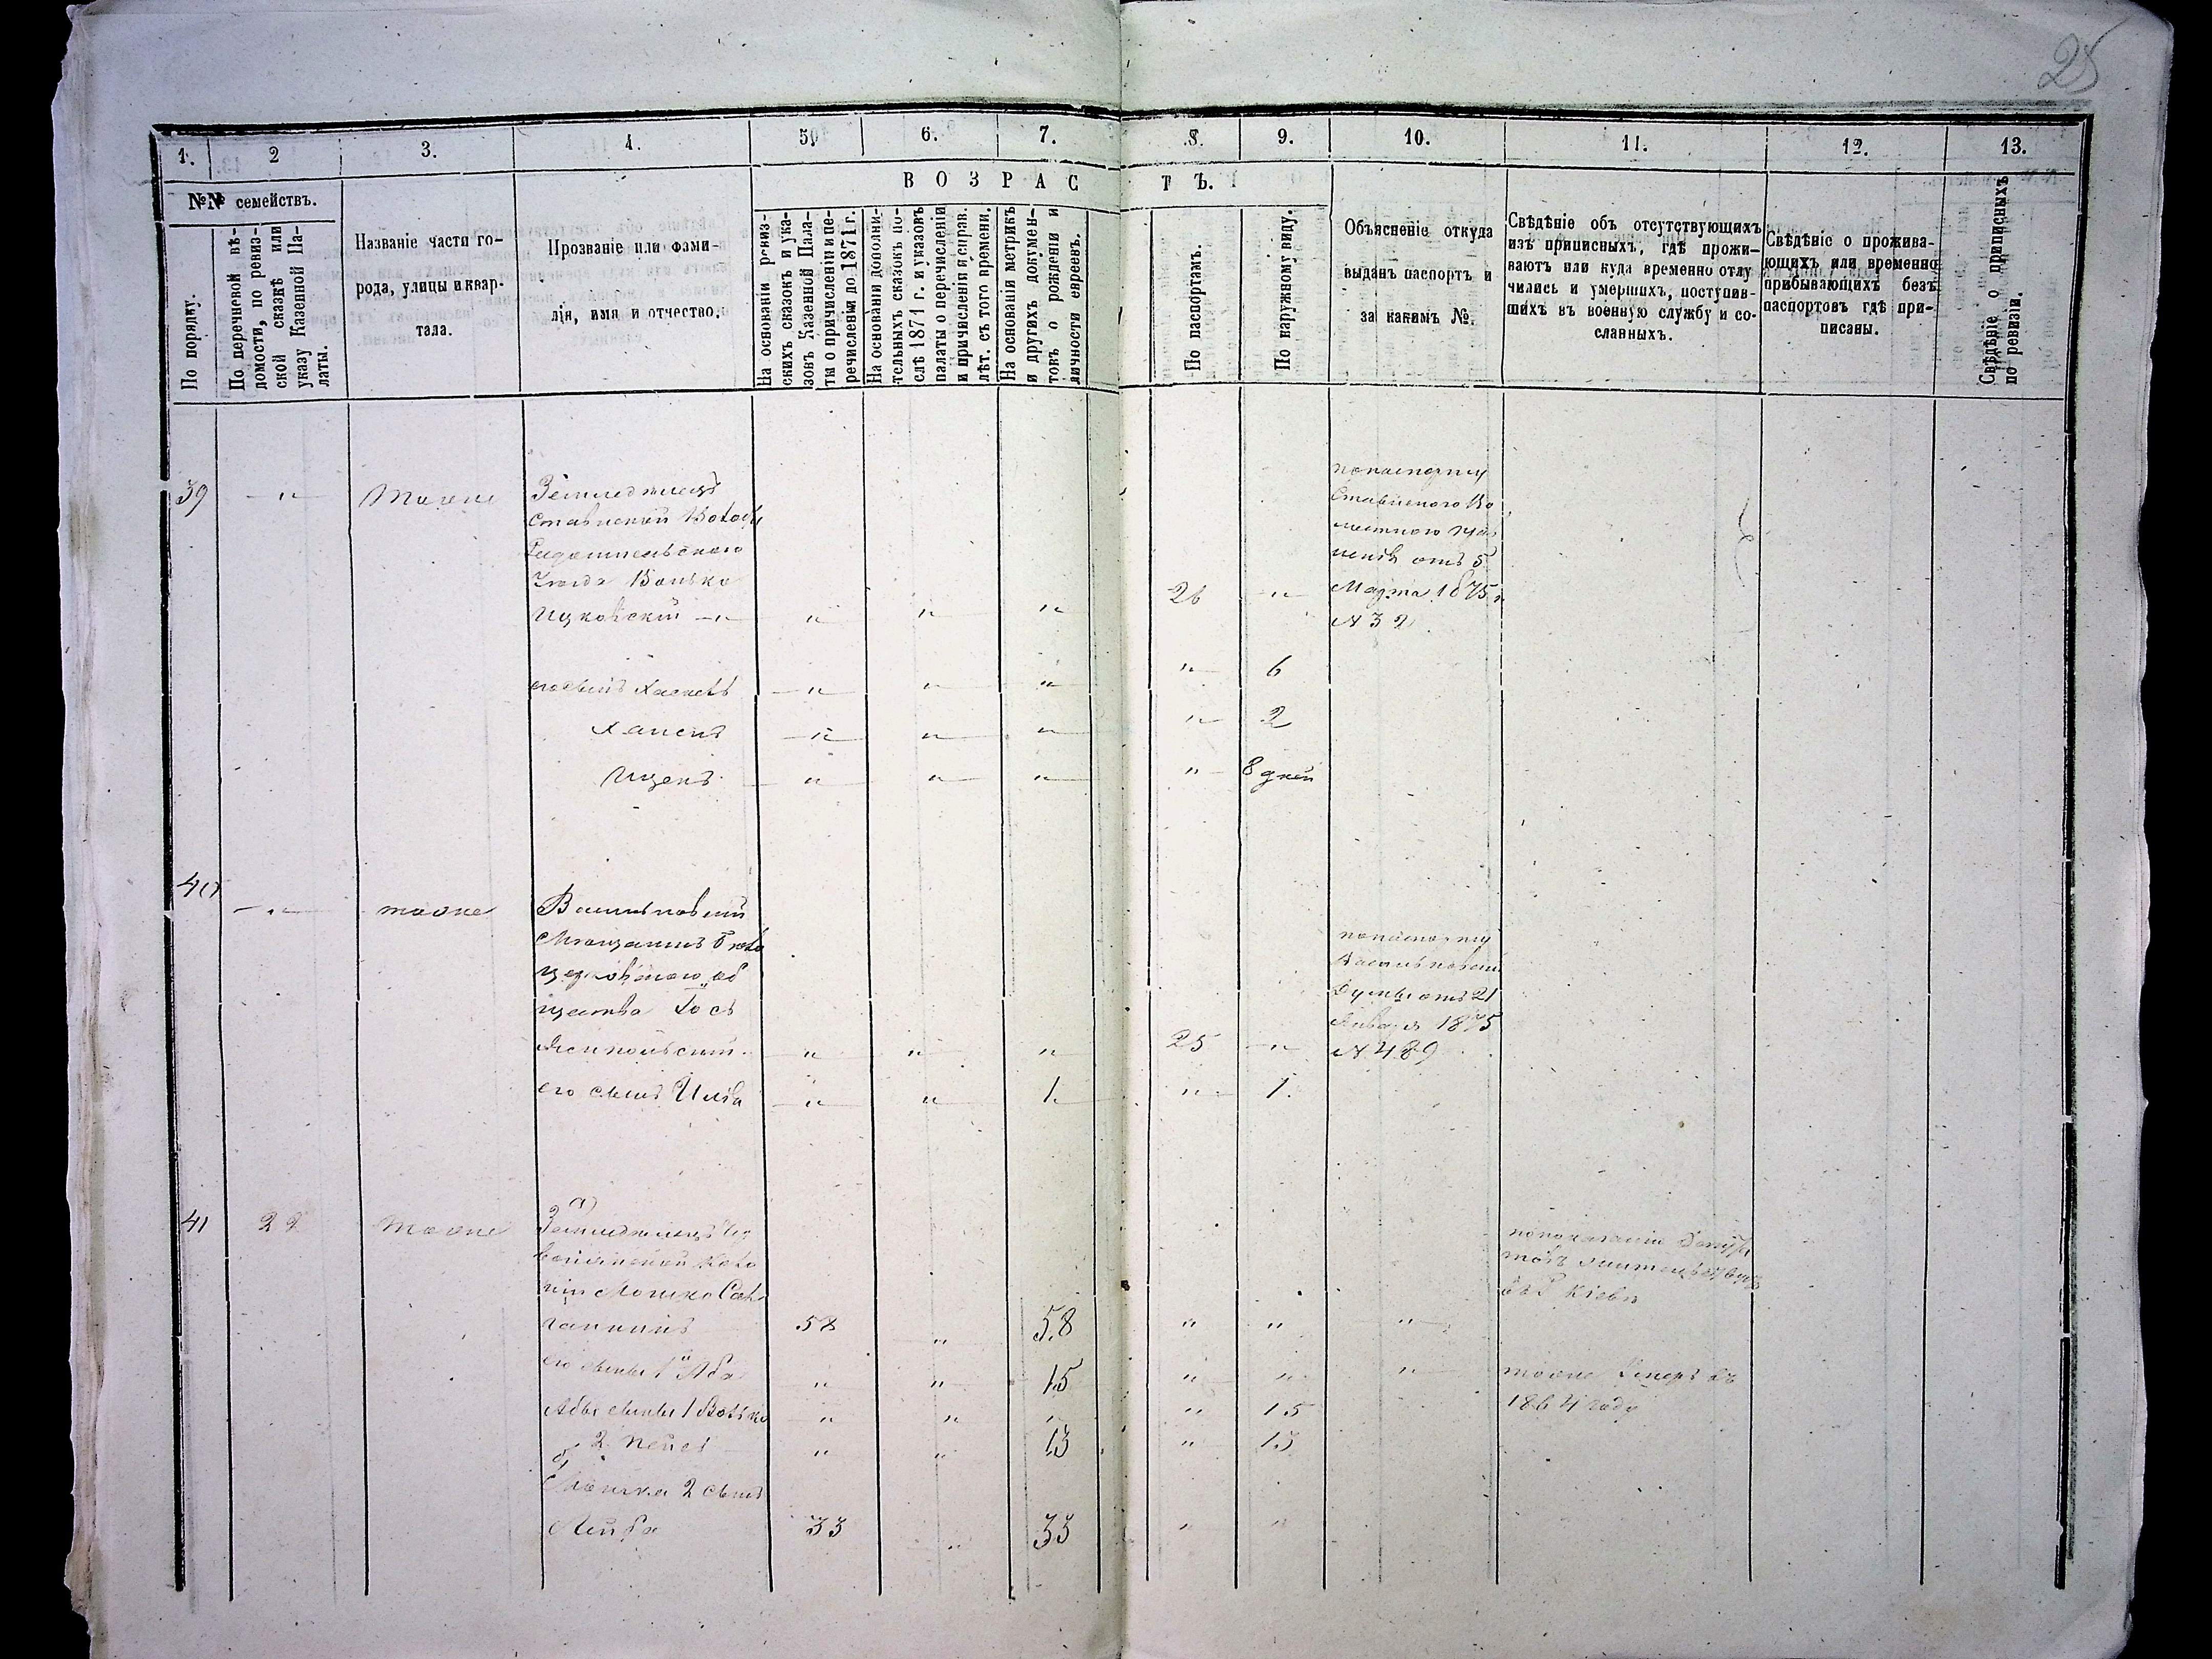 25
1. 2 3. 4. 5. 6. 7. 8. 9. 10. 11. 12. 13.
№№ семействъ.
По порядку.
По перечневой вѣ-
домости, по ревиз-
ской сказкѣ или
указу Казенной Па-
латы.
Названіе части го-
рода, улицы и квар-
тала.
Прозваніе или фами-
лія, имя и отчество.
ВОЗРАСТЪ.
На основаніи ревиз-
скихъ сказокъ и ука-
зовъ Казенной Пала-
ты о причисленіи и пе-
речисленіи до 1871 г.
На основаніи дополни-
тельныхъ сказокъ по-
слѣ 1871 г. и указовъ
палаты о перечисленіи
и причисленіи и справ.
лѣт. съ того времени.
На основаніи метрикъ
и другихъ докумен-
товъ о рожденіи и
личности евреевъ.
По паспортамъ.
По наружному виду.
Объясненіе откуда
выданъ паспортъ и
за какимъ №.
Свѣдѣніе объ отсутствующихъ
изъ приписныхъ, гдѣ прожи-
ваютъ или куда временно отлу
чились и умершихъ, поступив-
шихъ въ военную службу и со-
славныхъ.
Свѣдѣніе о прожива-
ющихъ или временно
прибывающихъ безъ
паспортовъ гдѣ при-
писаны.
Свѣдѣніе о приписныхъ
по ревизіи.
39 — " — Тоже Земледѣлецъ
Ставиской
Радомысльскаго
Уѣзда Волько
" " " 26 "
по паспорту
Ставиского Во
лостного
отъ 5
Марта 1875 г
№ 32
его сынъ Хаскель " " " " 6
" " " " 2
Ицекъ " " " " 8 дней
40 — " — тоже Васильковскій
Мѣщанинъ Бѣло
церковскаго об
щества Іось
" " " 25 "
по паспорту
Васильковской
Думы отъ 21
Января 1875
№ 489
его сынъ " " 1 " 1.
41 22 Тоже а)
Земледѣлецъ
Коло
ніи Мошко
58 " 58 " " "
по показанію
Кіевѣ
его сынъ 1й Аба " " 15 " " "
тоже
1864 году
Абы сыны 1 Волько " " " " 15
2 " " 13 " 13
б)
Мошка 2 сынъ
Лейба 33 " 33 " "